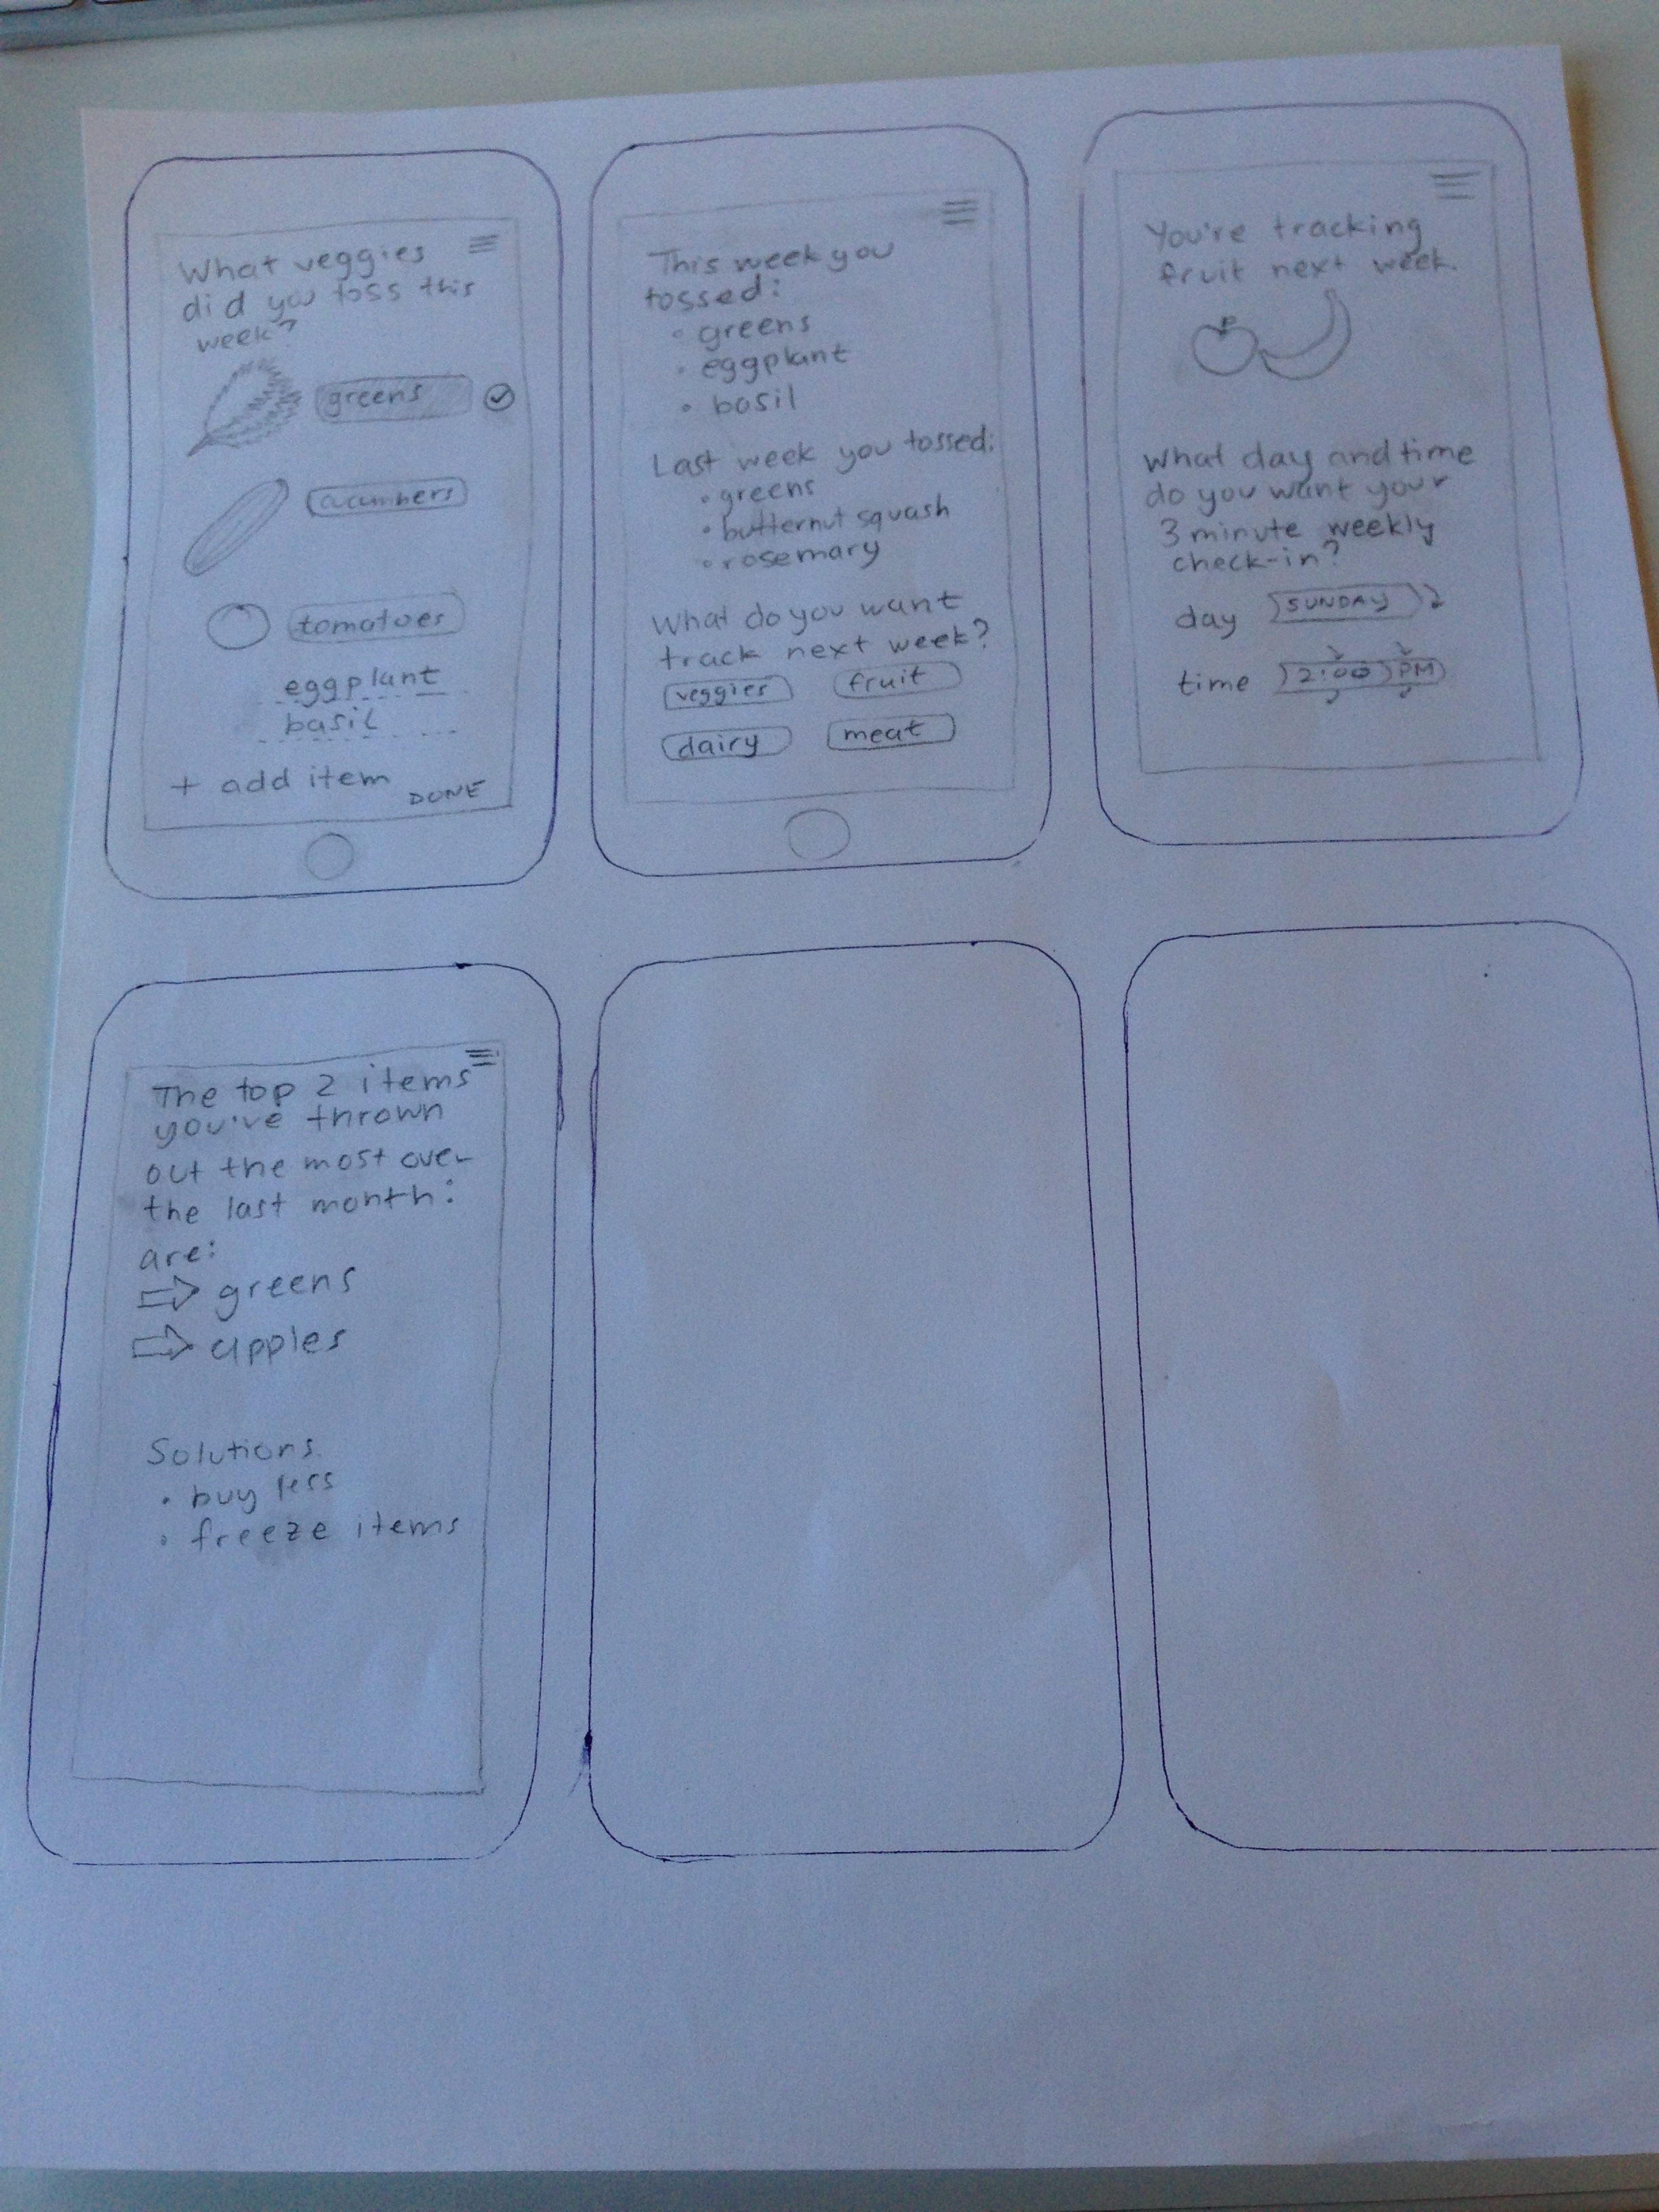 What veggies
did you toss this
week?
greens
cucumbers
tomatoes
eggplant
basil
+ add item
DONE
This week you
tossed:
• greens
• eggplant
• basil
Last week you tossed:
• greens
• butternut squash
• rosemary
What do you want
track next week?
veggies
fruit
dairy
meat
You're tracking
fruit next week.
What day and time
do you want your
3 minute weekly
check-in?
day SUNDAY
time 2:00 PM
The top 2 items
you've thrown
out the most over
the last month:
are:
⇨ greens
⇨ apples
Solutions
• buy less
• freeze items